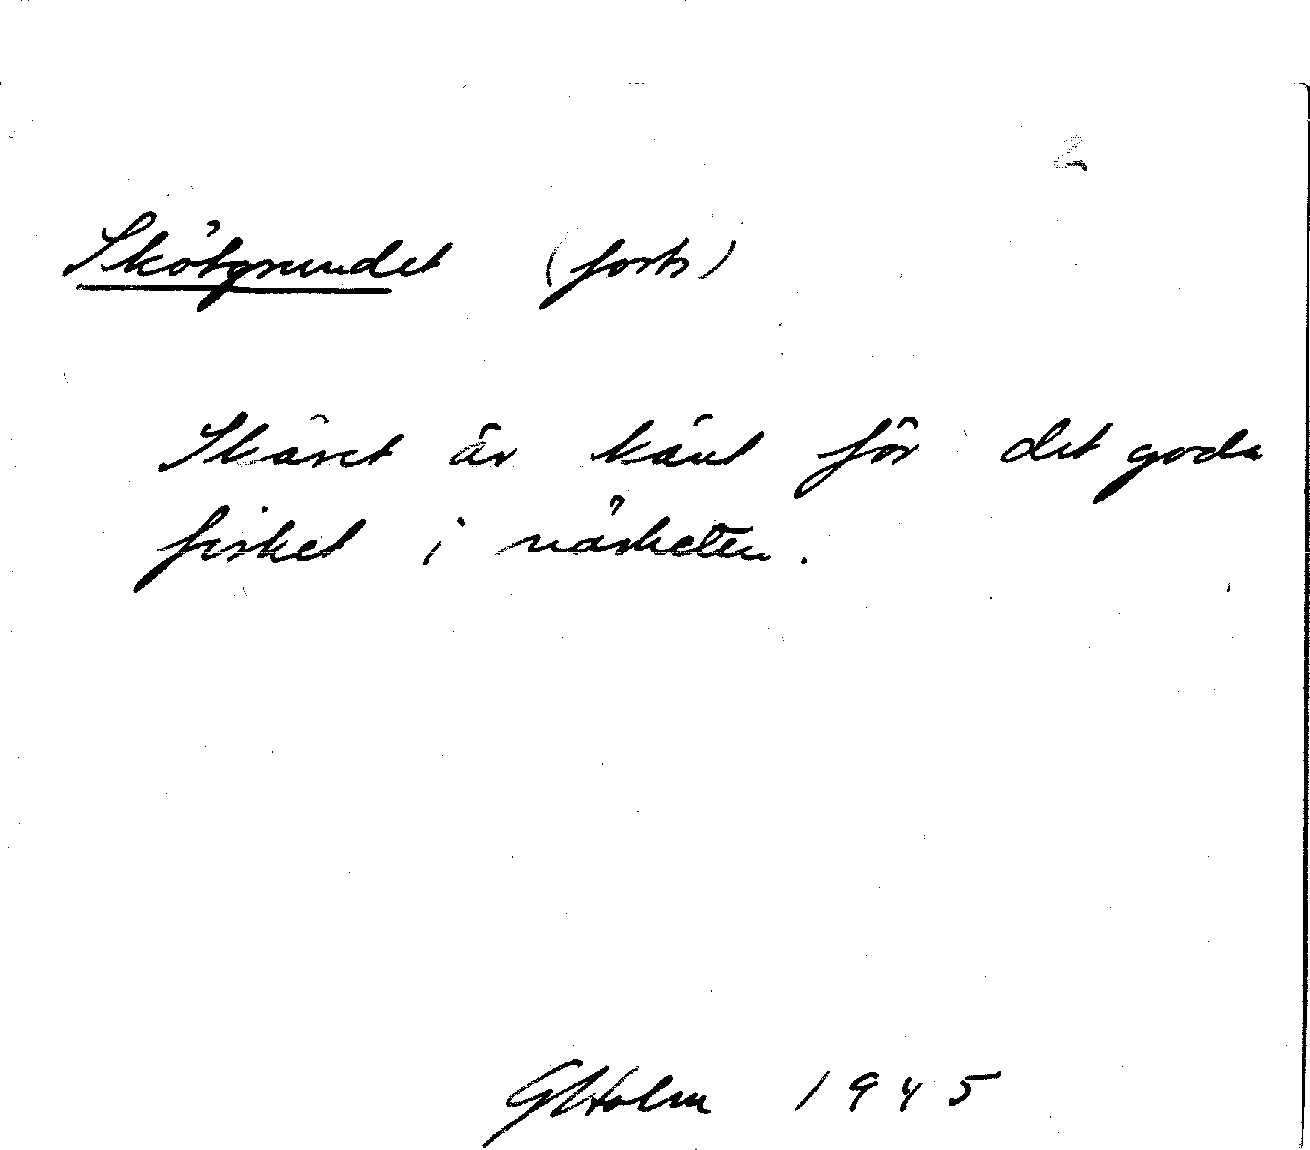 2
Skötgrundet (forts)
Skäret är känt för det goda
fisket i närheten.
G Holm 1945